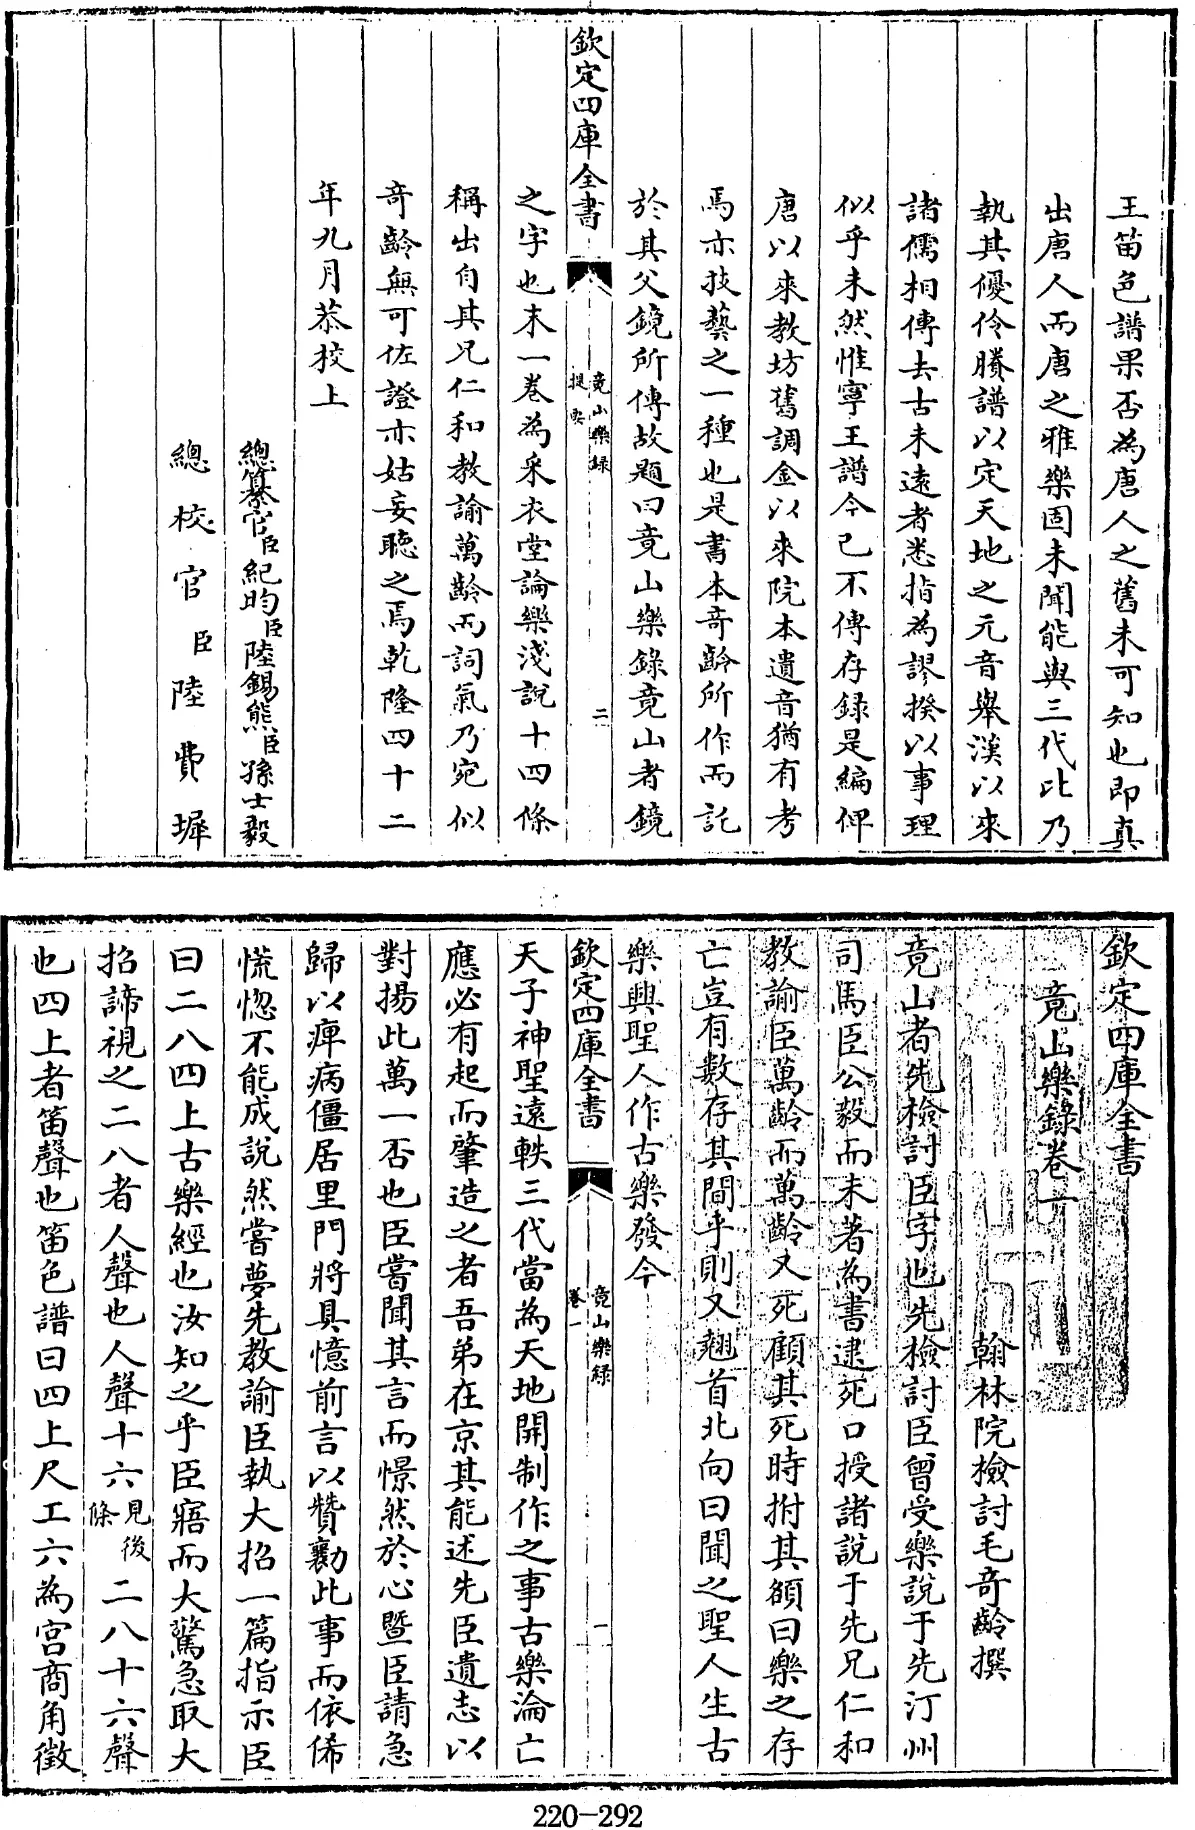 王笛色譜果否為唐人之舊未可知也即真
出唐人而唐之雅樂固未聞能與三代比乃
執其優伶賸譜以定天地之元音舉漢以來
諸儒相傳去古未遠者悉指為謬揆以事理
似乎未然惟寧王譜今已不傳存録是編俾
唐以來教坊舊調金以來院本遺音猶有考
焉亦技藝之一種也是書本奇齡所作而託
於其父鏡所傳故題曰竟山樂錄竟山者鏡
欽定四庫全書
竟山樂録
提要
二
之字也末一卷為采衣堂論樂淺說十四條
稱出自其兄仁和教諭萬齡而詞氣乃宛似
奇齡無可佐證亦姑妄聽之焉乾隆四十二
年九月恭校上
總纂官臣紀昀臣陸錫熊臣孫士毅
總校官臣陸費墀
欽定四庫全書
竟山樂錄卷一
翰林院檢討毛奇齡撰
竟山者先檢討臣字也先檢討臣曾受樂說于先汀州
司馬臣公毅而未著為書逮死口授諸說于先兄仁和
教諭臣萬齡而萬齡又死顧其死時拊其額曰樂之存
亡豈有數存其間乎則又翹首北向曰聞之聖人生古
樂興聖人作古樂發今
欽定四庫全書
竟山樂録
卷一
一
天子神聖遠軼三代當為天地開制作之事古樂淪亡
應必有起而肇造之者吾弟在京其能述先臣遺志以
對揚此萬一否也臣嘗聞其言而憬然於心暨臣請急
歸以痺病僵居里門將具憶前言以贊勷此事而依俙
慌惚不能成說然嘗夢先教諭臣執大招一篇指示臣
曰二八四上古樂經也汝知之乎臣寤而大驚急取大
招諦視之二八者人聲也人聲十六見後條二八十六聲
也四上者笛聲也笛色譜曰四上尺工六為宮商角徵
220-292